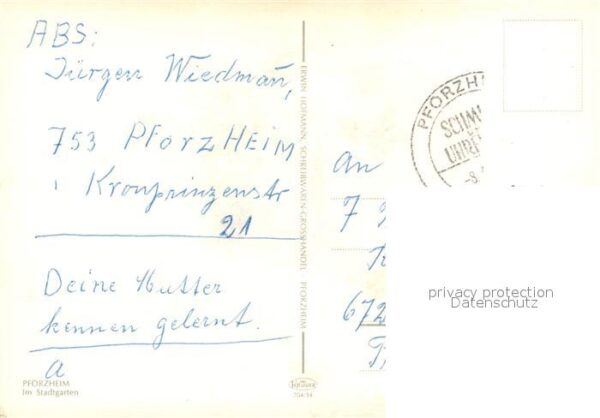 ABS:
Jürgen Wiedmañ,
753 PforzHeim
Kronprinzenstr
21
Deine Mutter
kennen gelernt.
a
PFORZHEIM
Im Stadtgarten
ERWIN HOFMANN, SCHREIBWAREN-GROSSHANDEL PFORZHEIM
704/14
PFORZH
SCHM
UHR
-8.
An
7
672
privacy protection
Datenschutz